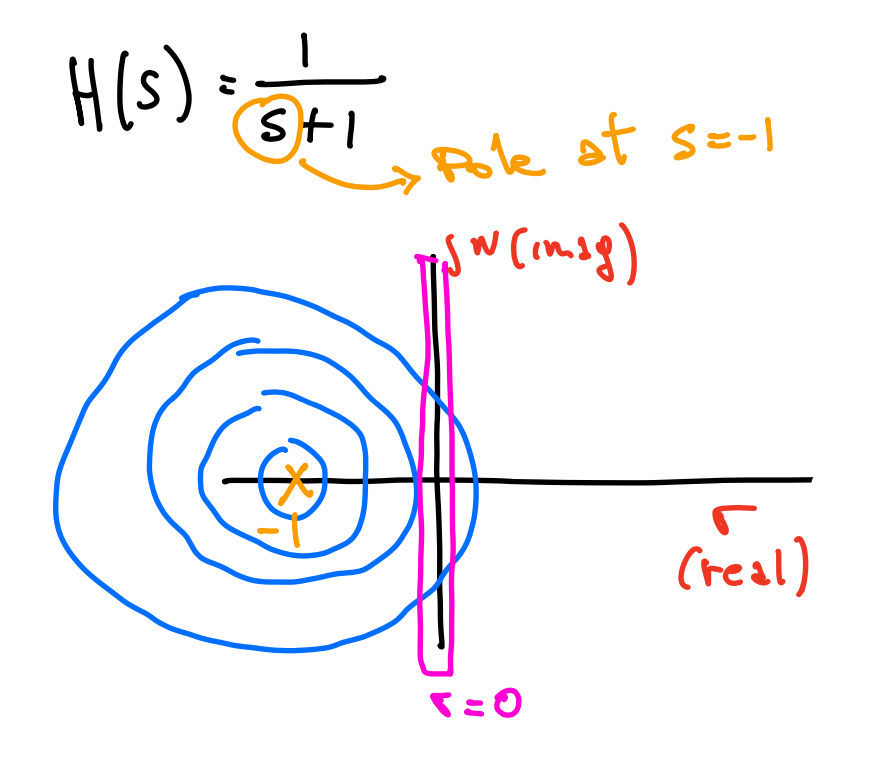 H(s) = 1/(s+1)
Pole at s=-1
jw (imag)
-1
σ
(real)
σ=0